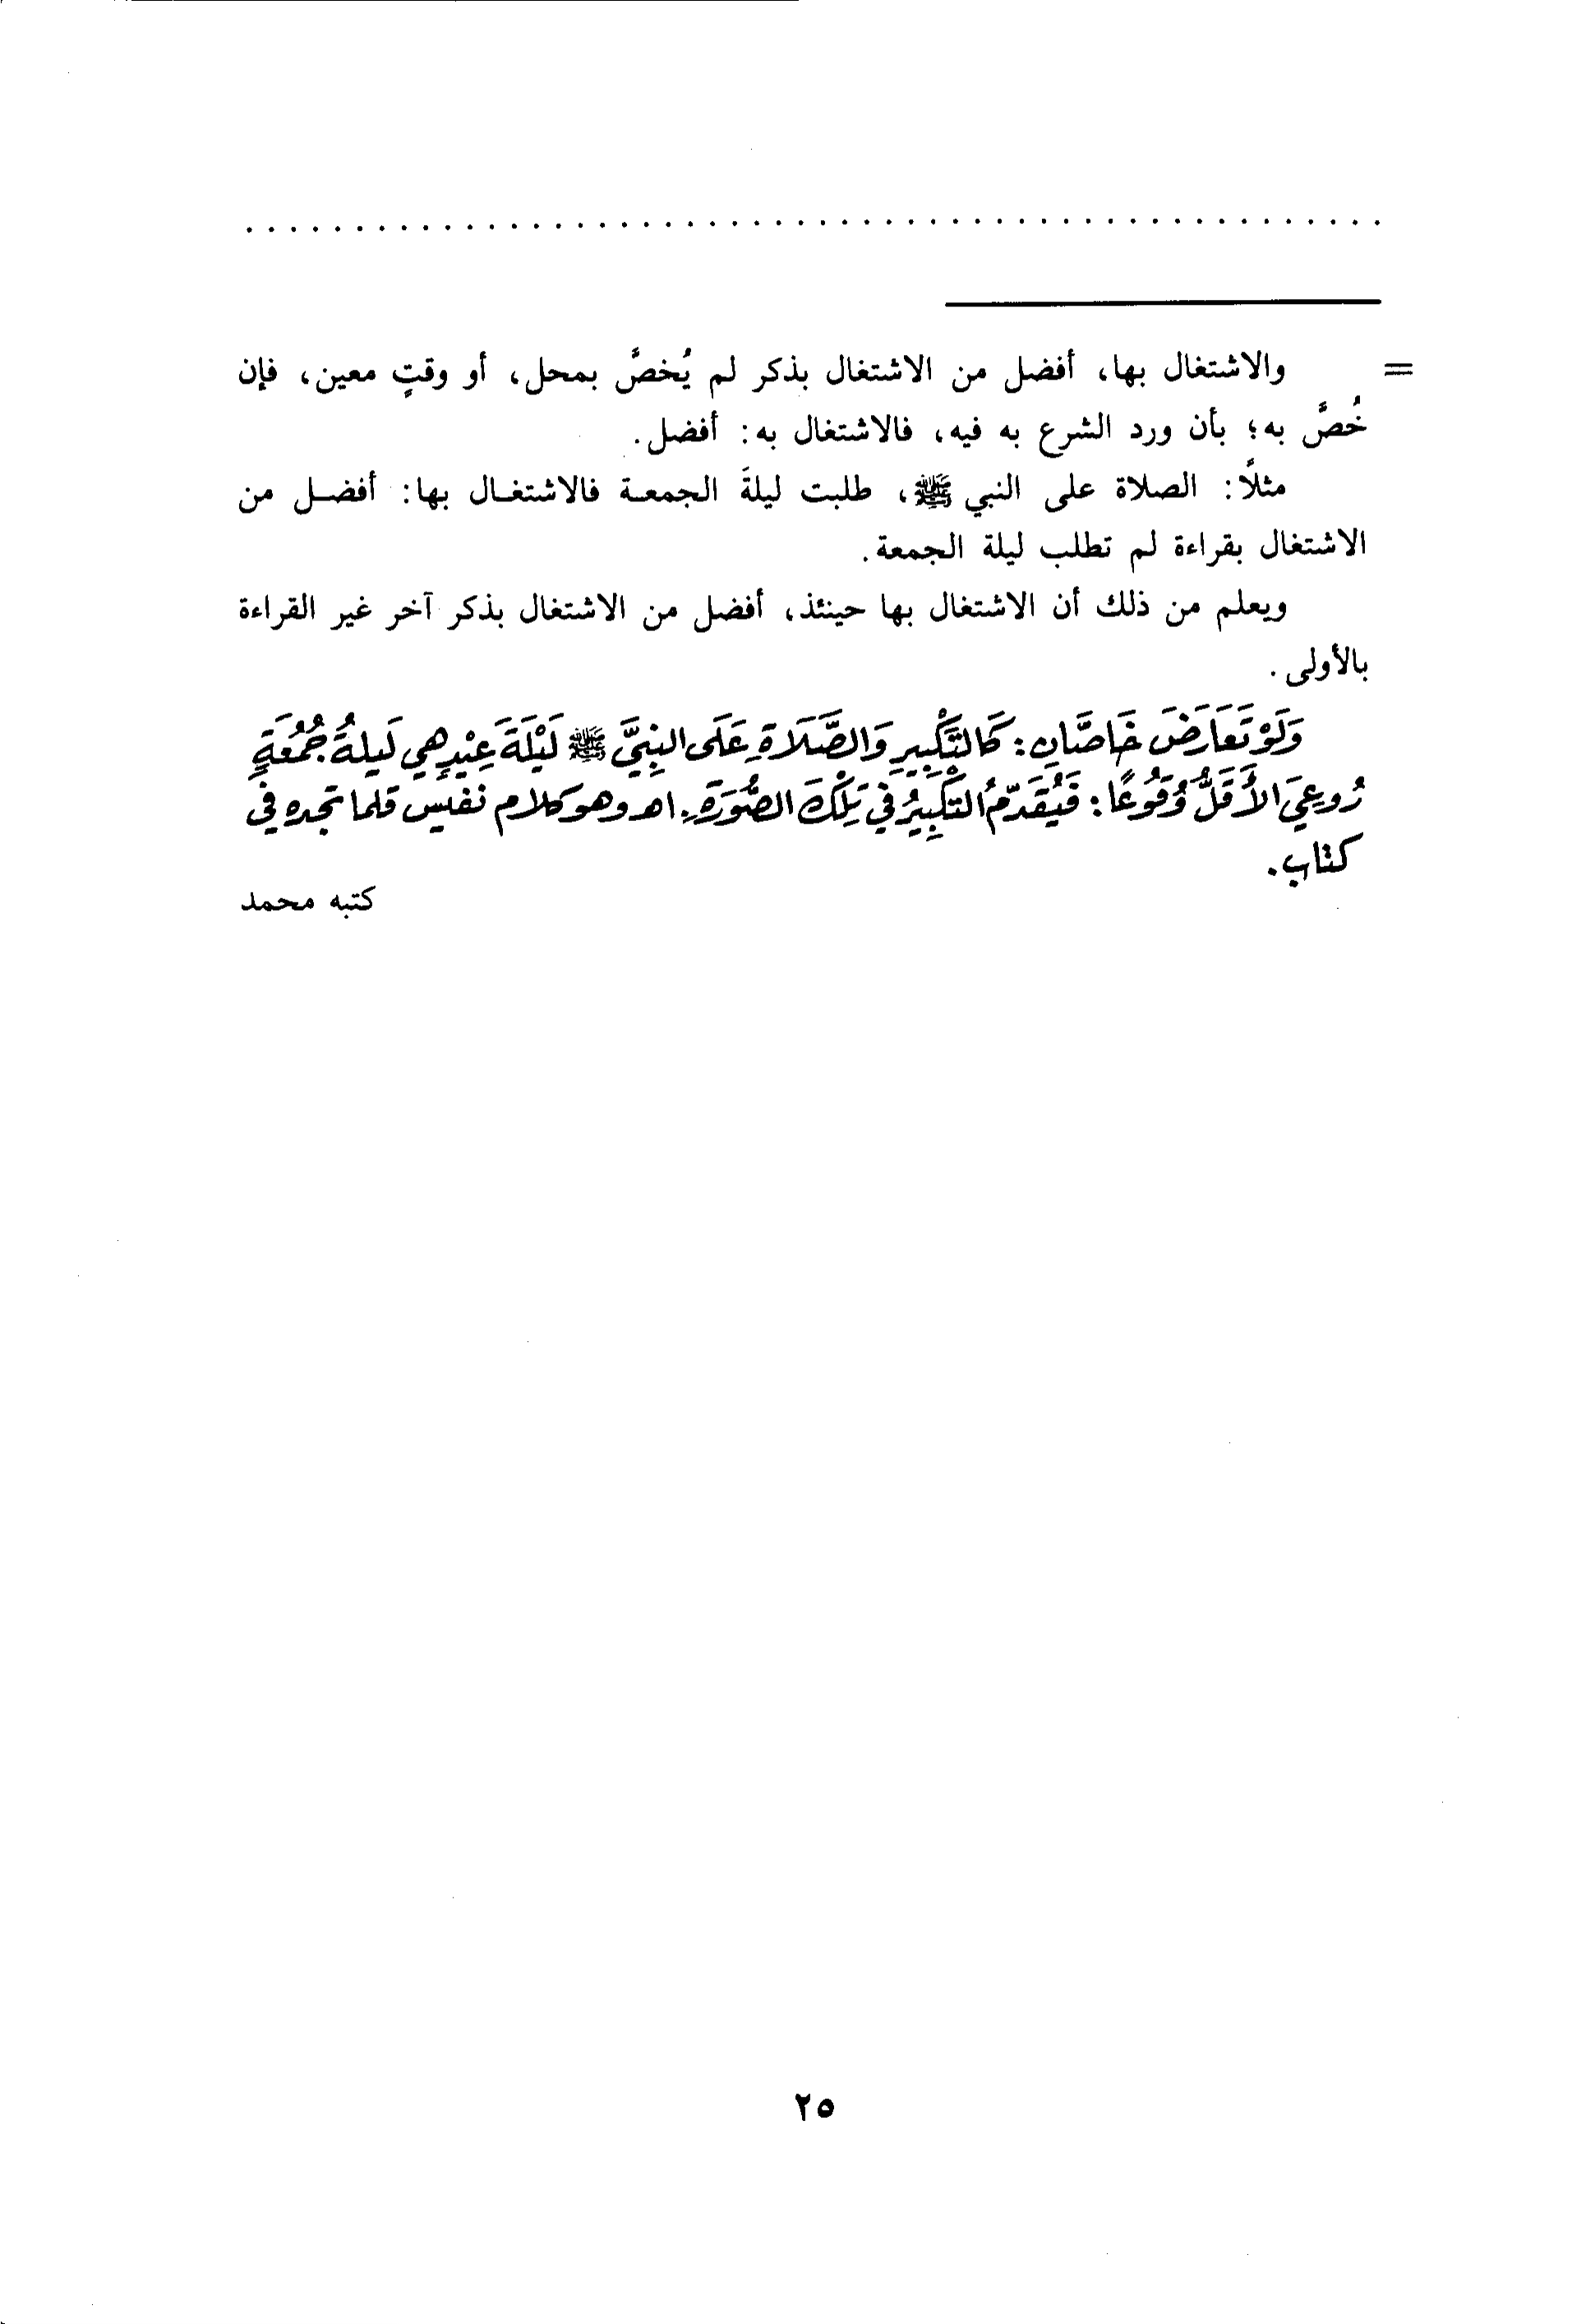 . . . . . . . . . . . . . . . . . . . . . . . . . . . . . . . . . . . . . . . . . . . . . . . . . . . .
= والاشتغال بها، أفضل من الاشتغال بذكر لم يُخصَّ بمحل، أو وقتٍ معين، فإن
خُصَّ به؛ بأن ورد الشرع به فيه، فالاشتغال به: أفضل.
مثلًا: الصلاة على النبي ﷺ، طلبت ليلةَ الجمعة فالاشتغال بها: أفضل من
الاشتغال بقراءة لم تطلب ليلة الجمعة.
ويعلم من ذلك أن الاشتغال بها حينئذ، أفضل من الاشتغال بذكر آخر غير القراءة
بالأولى.
وَلَوْ تَعَارَضَ خَاصَّانِ: كَالتَّكْبِيرِ وَالصَّلَاةِ عَلَى النبِيَّ ﷺ لَيْلَةَ عِيْدٍ هِي لَيلةُ جُمُعَةٍ
رُوعِيَ الأَقَلُّ وُقُوعًا: فَيُقَدّمُ التكْبِيرُ في تِلْكَ الصُّورَةِ. اهـ وهو كلام نفيس قلما تجده في
كتاب.
كتبه محمد
٢٥